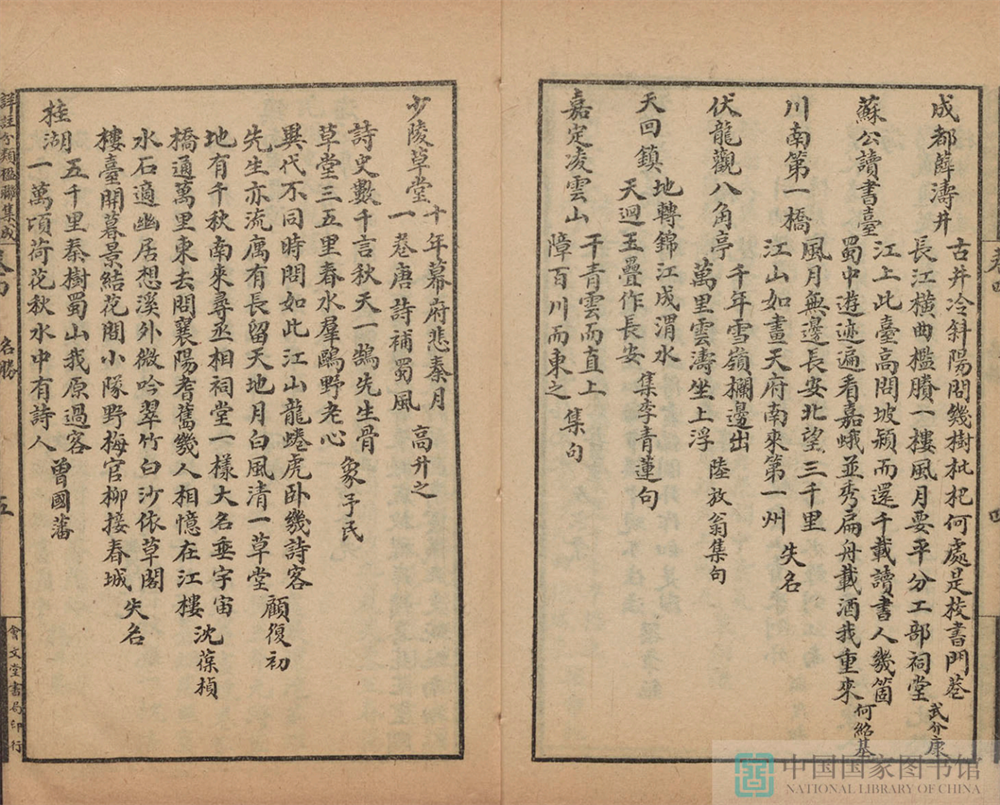 成都薛濤井
古井冷斜陽問幾樹枇杷何處是校書門巷
長江橫曲檻賸一樓風月要平分工部祠堂
武介康
蘇公讀書臺
江上此臺高問坡潁而還千載讀書人幾箇
蜀中遊迹遍看嘉峨並秀扁舟載酒我重來
何紹基
川南第一橋
風月無邊長安北望三千里
江山如畫天府南來第一州
失名
伏龍觀八角亭
千年雪嶺欄邊出
萬里雲濤坐上浮
陸放翁集句
天回鎮
地轉錦江成渭水
天迴玉壘作長安
集李青蓮句
嘉定凌雲山
干青雲而直上
障百川而東之
集句
少陵草堂
十年幕府悲秦月
一卷唐詩補蜀風
高升之
詩史數千言秋天一鵠先生骨
草堂三五里春水羣鷗野老心
象予民
異代不同時問如此江山龍蜷虎卧幾詩客
先生亦流寓有長留天地月白風清一草堂
顧復初
地有千秋南來尋丞相祠堂一樣大名垂宇宙
橋通萬里東去問襄陽耆舊幾人相憶在江樓
沈葆楨
水石適幽居想溪外微吟翠竹白沙依草閣
樓臺開暮景結花間小隊野梅官柳接春城
失名
桂湖
五千里秦樹蜀山我原過客
一萬頃荷花秋水中有詩人
曾國藩
詳註分類楹聯集成
卷四
名勝
五
會文堂書局印行
卷四
中国国家图书馆
NATIONAL LIBRARY OF CHINA